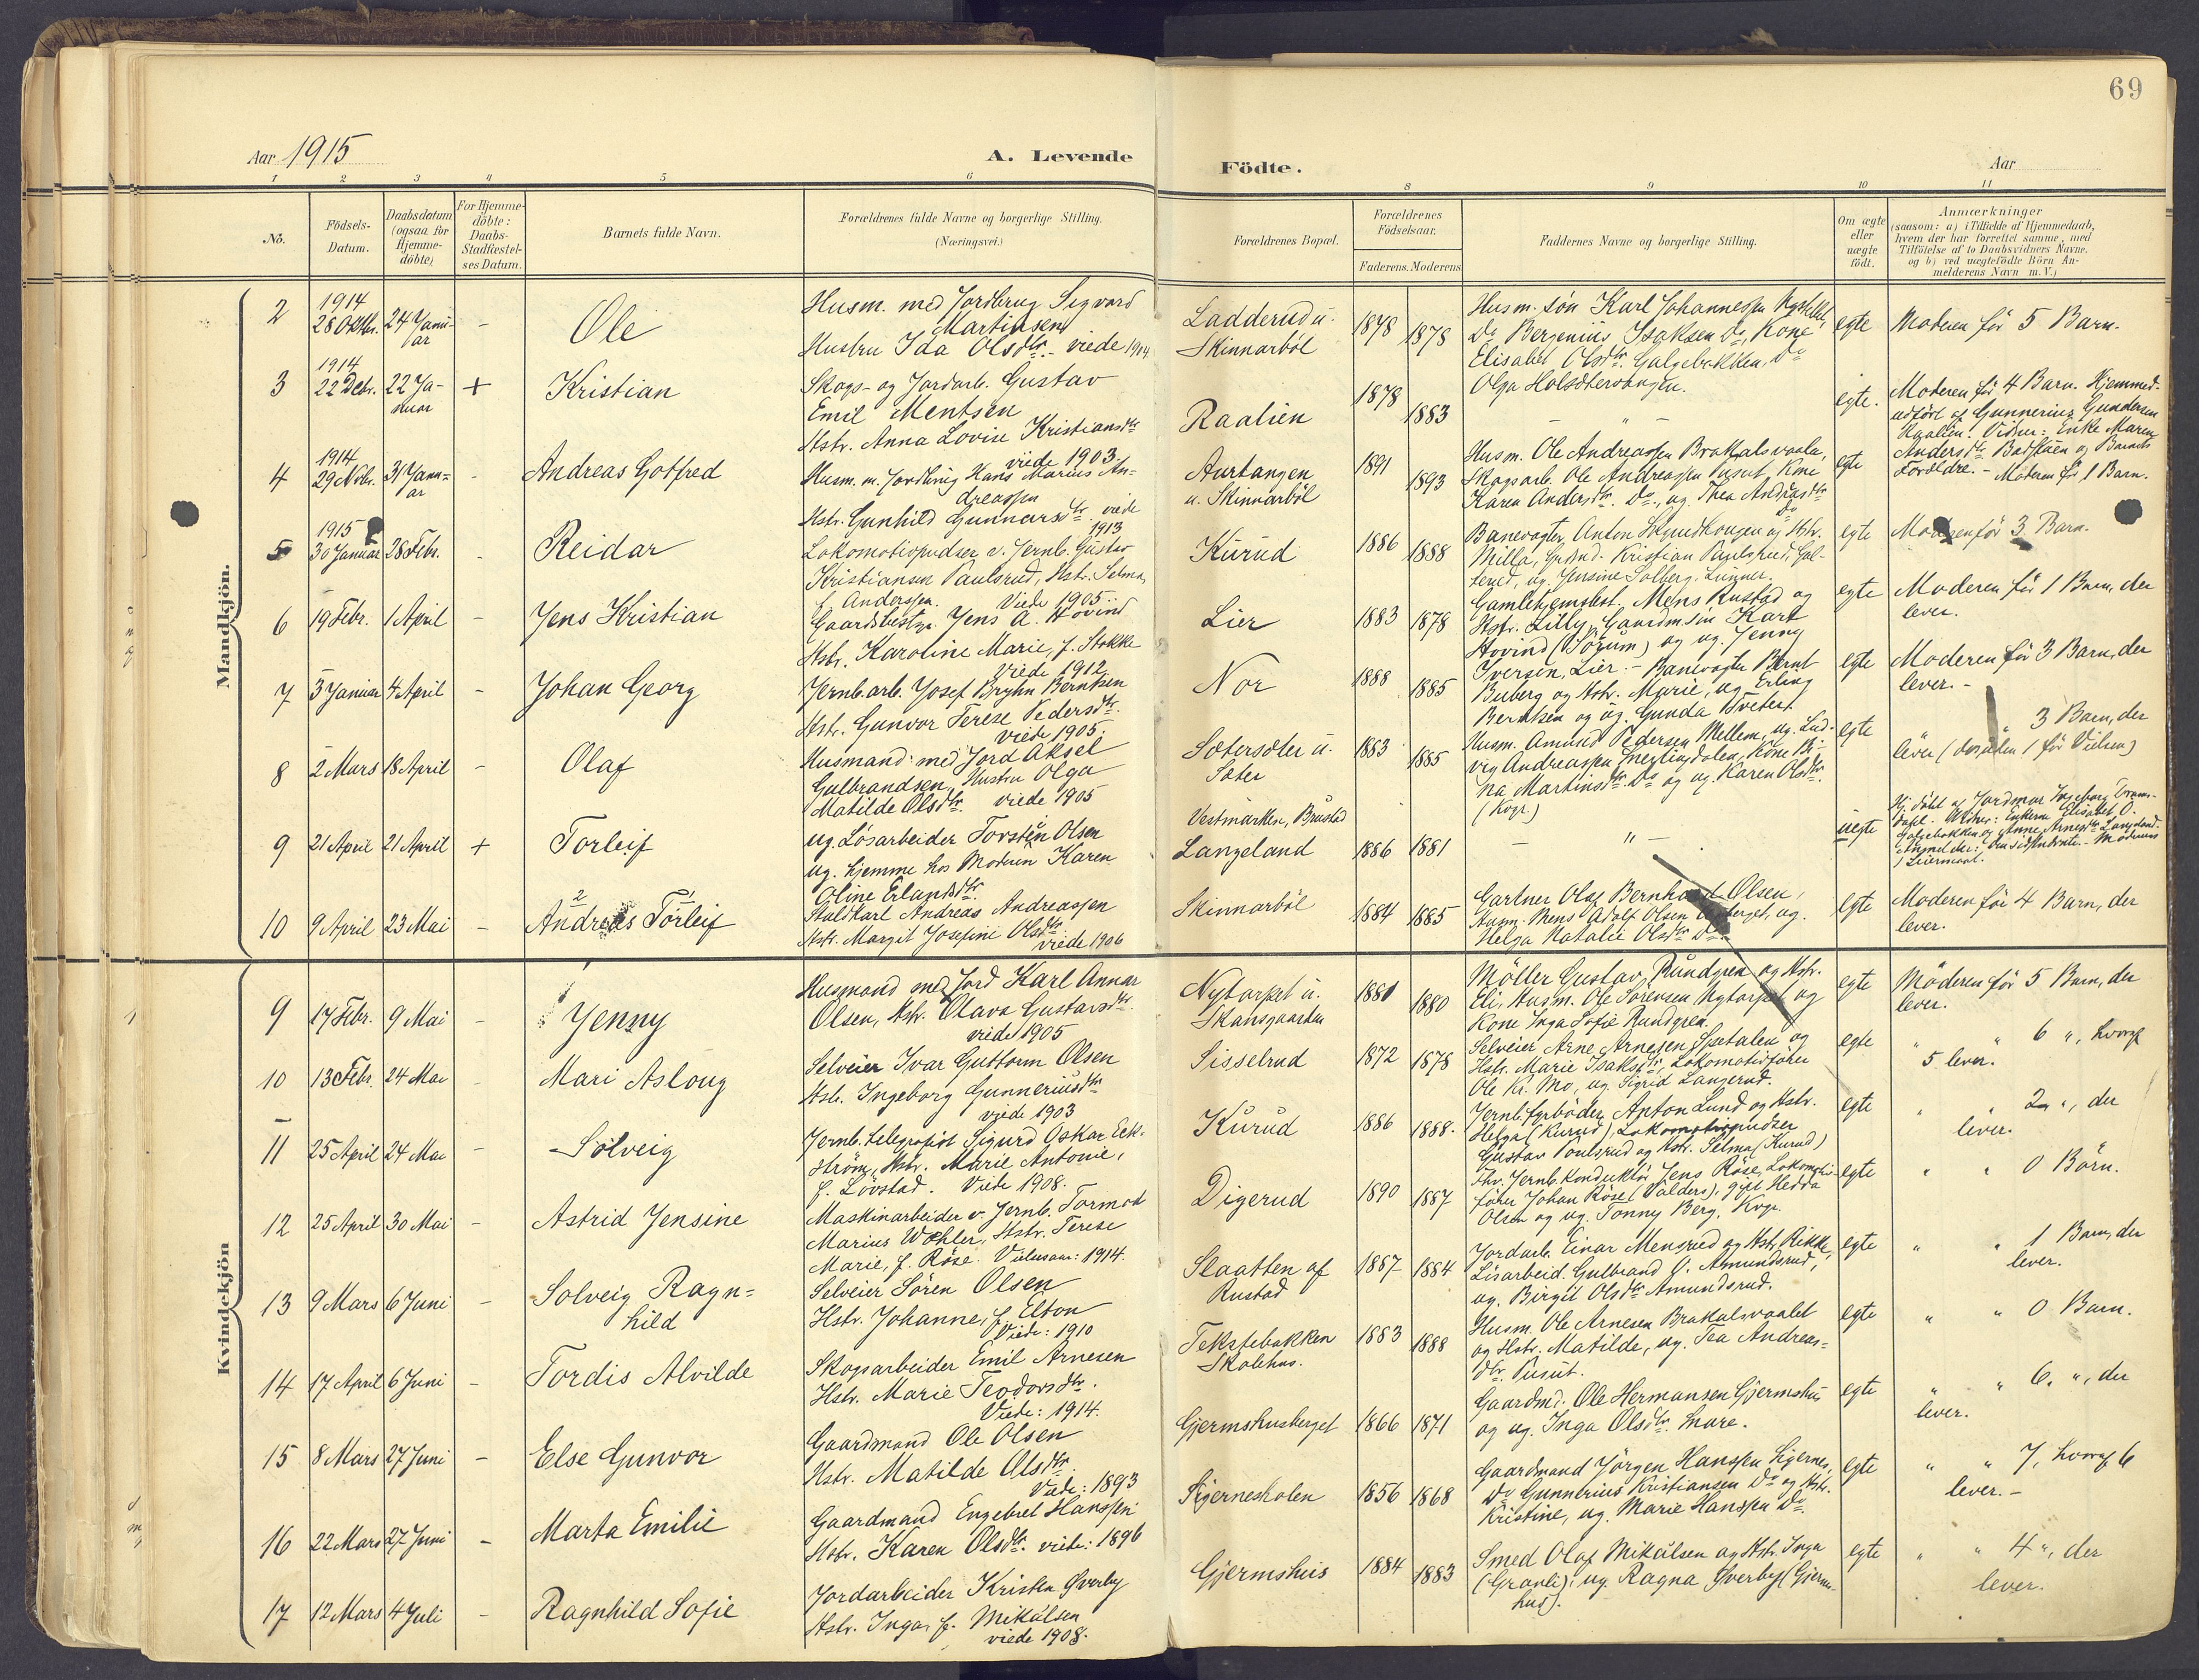 69
Aar 1915
A. Levende
Födte.
Aar
1 2 3 4 5 6 8 9 10 11
No.
Födsels-Datum.
Daabsdatum (ogsaa for Hjemme-döbte)
For Hjemme-döbte: Daabs-Stadfæstel-ses Datum.
Barnets fulde Navn.
Forældrenes fulde Navne og borgerlige Stilling.
(Næringsvei.)
Forældrenes Bopæl.
Forældrenes Födselsaar.
Faderens. Moderens
Faddernes Navne og borgerlige Stilling.
Om ægte eller uægte födt.
Anmærkninger
(saasom: a) i Tilfælde af Hjemmedaab,
hvem der har forrettet samme, med
Tilföielse af to Daabsvidners Navne.
og b) ved uægtefödte Börn An-
melderens Navn m. V.)
Mandkjön.
2
1914
28 Oktbr.
24 Janu-
ar
-
Ole
Husm. med Jordbrug Sigvard
Martinsen
Hustru Ida Olsdtr. - viede 1904
Ladderud u.
Skinnarböl
1878
1878
Husm. sön Karl Johannessen
Do Bergenius Isaksen Do, Kone
Elisabet Olsdtr. Galgebakken, Do
Olga Holsæterhaugen.
egte
Moderen för 5 Barn.
3
1914
22 Decbr.
22 Ja-
nuar
+
Kristian
Skogs- og Jordarb. Gustav
Emil Mentsen
Hstr. Anna Lovise Kristiansdtr
viede 1903
Raalien
1878
1883
- " -
egte.
Moderen för 4 Barn. Hjemmed.
udført af Gunnerius Gundersen
Raalien. Vidner: Enke Maren
Andersdtr. Badstuen og Barnets
Forældre. -
4
1914
29 Novbr.
31 Janu-
ar
-
Andreas Gotfred
Husm. m. Jordbrug Hans Marius An-
dreassen
Hstr. Gunhild Gunnarsdtr. viede
1913
Aurtangen
u. Skinnarböl
1891
1893
Husm. Ole Andreassen Brakalsvaala,
Skogsarb. Ole Andreassen Pusut Kone
Karen Andersdtr. Do, ug. Thea Andreasdtr
Do
egte
Moderen för 1 Barn.
5
1915
30 Januar
28 Febr.
-
Reidar
Lokomotivpudser v. Jernb. Gustav
Kristiansen Paulsrud, Hstr. Selma,
f. Anderssen. Viede 1905.
Kurud
1886
1888
Banevogter Anton og Hstr.
Milla, Kristian Paulsrud,
og Jensine Solberg, Lunner.
egte
Moderen för 3 Barn.
6
19 Febr.
1 April
-
Jens Kristian
Gaardsbestyr. Jens A. Hovind
Hstr. Karoline Marie, f. Stokke
Viede 1912
Lier
1883
1878
Gamlehjemsbest. Mens Rustad og
Hstr. Lilly, Gaardm.sön Karl
Hovind (Sörum) og ug. Jenny
Iversen, Lier. -
egte
Moderen för 1 Barn, der
lever.
7
3 Januar
4 April
-
Johan Georg
Jernb.arb. Josef Bryhn Berntsen
Hstr. Gunvor Terese Pedersdtr.
viede 1905.
Nor
1888
1885
Banevogter Bernt
Buberg og Hstr. Marie, ug. Erling
Berntsen og ug. Gunda Tvetert
egte
Moderen för 3 Barn, der
lever. -
8
2 Mars
18 April
-
Olaf
Husmand med Jord Aksel
Gulbrandsen, Hustru Olga
Matilde Olsdtr. viede 1905
Sætersæter u.
Sæter
1883
1885
Husm. Amund Pedersen Mellem, ug. Lud-
vig Andreassen Kone
Martinsdtr. Do og ug. Karen Olsdtr.
(Kvgr.)
egte
" 3 Barn, der
lever (desuden 1 för Vielsen)
9
21 April
21 April
+
Torleif
ug. Lösarbeider Torsten Olsen
ug. hjemme hos Moderen Karen
Oline Erlandsdtr.
Vestmarken, Brustad
Langeland
1886
1881
- " -
uegte
Hj. döbt af Jordmor Ingeborg
Vidner: Enkerne Elisabet O.
Galgebakken og Anne Arnesdtr. Langeland.
Moderens
1 Leiermaal.
10
9 April
23 Mai
-
2 1
Andreas Torleif
Staldkarl Andreas Andreassen
Hstr. Margit Josefine Olsdtr.
viede 1906
Skinnarböl
1884
1885
Gartner Olaf Bernhard Olsen,
Husm. Mens Adolf Olsen ug.
Helga Natalie Olsdtr. Do
egte
Moderen för 4 Barn, der
lever.
Kvindekjön
9
17 Febr.
9 Mai
-
Jenny
Husmand med Jord Karl Annar
Olsen, Hstr. Olava Gustavsdtr.
viede 1905
Nytorpet u.
Skansgaarden
1881
1880
Möller Gustav Rundgren og Hstr.
Eli, Husm. Ole Sörensen Nytorpet og
Kone Inga Sofie Rundgren.
egte
Moderen för 5 Barn, der
lever.
10
13 Febr.
24 Mai
-
Mari Aslaug
Selveier Ivar Guttorm Olsen
Hstr. Ingeborg Gunneriusdtr
viede 1903
Sisselrud
1872
1878
Selveier Arne Arnesen Spetalen og
Hstr. Marie Isaksdtr, Lokomotivförer
Ole Kr. Mo, ug. Sigrid Langerud.
egte
" " 6 ", hvoraf
5 lever.
11
25 April
24 Mai
-
Solveig
Jernb.telegrafist Sigurd Oskar Eck-
ström, Hstr. Marie Antonie,
f. Lövstad. Viede 1908.
Kurud
1886
1888.
Jernb.fyrböder Anton Lund og Hstr.
Helga (Kurud), Lokomotivpudser
Gustav Poulsrud og Hstr. Selma (Kurud)
egte
" " 2 ", der
lever.
12
25 April
30 Mai
-
Astrid Jensine
Maskinarbeider v. Jernb. Tormod
Marius Wøhler, Hstr. Terese
Marie, f. Röse. Vielsesaar: 1914.
Digerud
1890
1887
Fhv. Jernb.konduktör Jens Röse, Lokomotiv-
förer Johan Röse (Valders), gift Hedda
Olsen og ug. Tonny Berg, Kvgr.
egte
" " 0 Börn.
13
9 Mars
6 Juni
-
Solveig Ragn=
hild
Selveier Sören Olsen
Hstr. Johanne, f. Elton
Viede: 1910
Slaatten af
Rustad
1887
1884
Jordarb. Einar Mensrud og Hstr. Rikke,
Lösarbeid. Gulbrand O. Amundsrud,
ug. Birgit Olsdtr Amundsrud.
egte
" " 1 Barn, der
lever.
14
17 April
6 Juni
-
Tordis Alvilde
Skogsarbeider Emil Arnesen
Hstr. Marie Teodorsdtr.
Viede: 1914.
Tekstebakken
Skolehus.
1883
1888
Husm. Ole Arnesen Brakalsvaalet
og Hstr. Matilde, ug. Tea Andreas=
dtr. Pusut.
egte
" " 0 Barn.
15
8 Mars
27 Juni
-
Else Gunvor
Gaardmand Ole Olsen
Hstr. Matilde Olsdtr.
Viede: 1893
Gjermshusberget
1866
1871
Gaardmd. Ole Hermansen Gjermshus
og ug. Inga Olsdtr. Snare.
egte
" " 6, ", der
lever.
16
22 Mars
27 Juni
-
Marta Emilie
Gaardmand Engebret Hanssen
Hstr. Karen Olsdtr. viede: 1896
Sigerneskolen
1856
1868
Gaardmand Jörgen Hanssen Sigernes,
Do Gunnerius Kristiansen Do og Hstr.
Kristine, ug. Marie Hanssen Do
egte
" " 7, hvoraf 6
lever. -
17
12 Mars
4 Juli
-
Ragnhild Sofie
Jordarbeider Kristen Øverby
Hstr. Inga, f. Mikalsen
viede 1908.
Gjermshus
1884
1883
Smed Olaf Mikalsen og Hstr. Inga
(Granli), ug. Ragna Øverby (Gjerms-
hus).
egte
" " 4 ", der
lever.